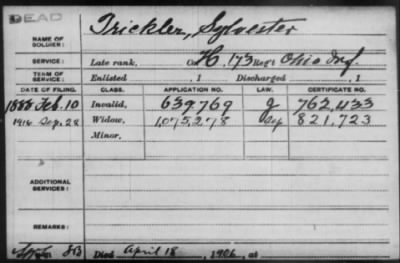 DEAD
NAME OF SOLDIER: Trickler, Sylvester
SERVICE: Late rank, Co. H, 173 Reg't Ohio Inf.
TERM OF SERVICE: Enlisted , 1 Discharged , 1
DATE OF FILING. CLASS. APPLICATION NO. LAW. CERTIFICATE NO.
1888 Feb. 10 Invalid, 639,769 J 762,433
Sep. 28 Widow, 1,075,278 821,723
Minor.
ADDITIONAL SERVICES:
REMARKS:
Died April 18, 1906, at